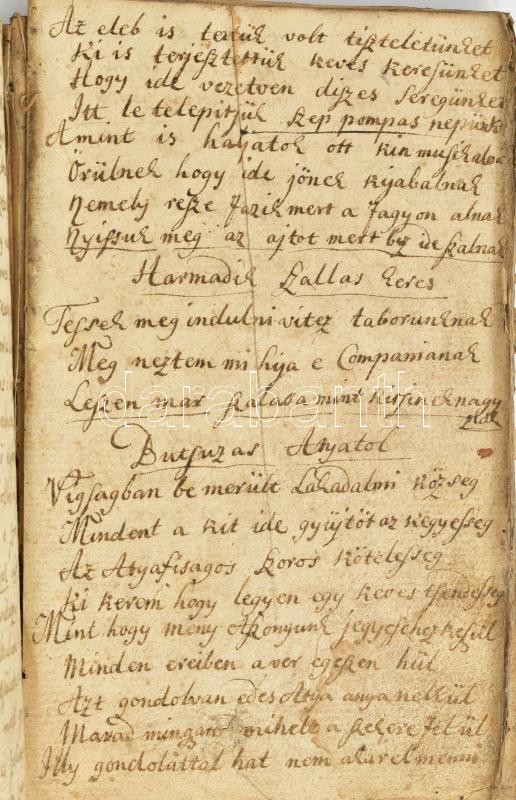 Az eleb is tettük volt tiszteletünket
Ki is terjesztettük keves keresünket
Hogy ide vezetven diszes seregünket
Itt le telepitsük szep pompas nepünket
Amint is hajatok ott kin
Örülnek hogy ide jönek kyabalnak
Nemely resze fazik mert a fagyon alnak
Nyissuk meg az ajtot mert by de szalnak
Harmadik szallas keres
Tessek meg indulni vitez taborunknak
Meg neztem mi hija e Companianak
Leszen mar szalasa mint kisinek nagy
nak
Butsuzas Atyatol
Vigsagban be merült Lakadalmi község
Mindent a kit ide gyüjtöt az kegyesseg
Az Atyafisagos szoros kötelesseg
Ki kerem hogy legyen egy keves tsendesseg
Mint hogy meny jegyesehez keszül
Minden ereiben a ver egeszen hül
Azt gondolvan edes Atya anya nelkül
Marad mingart mihelt a szekere fel ül
Illy gondolattal hat nem akar el menni
darabanth